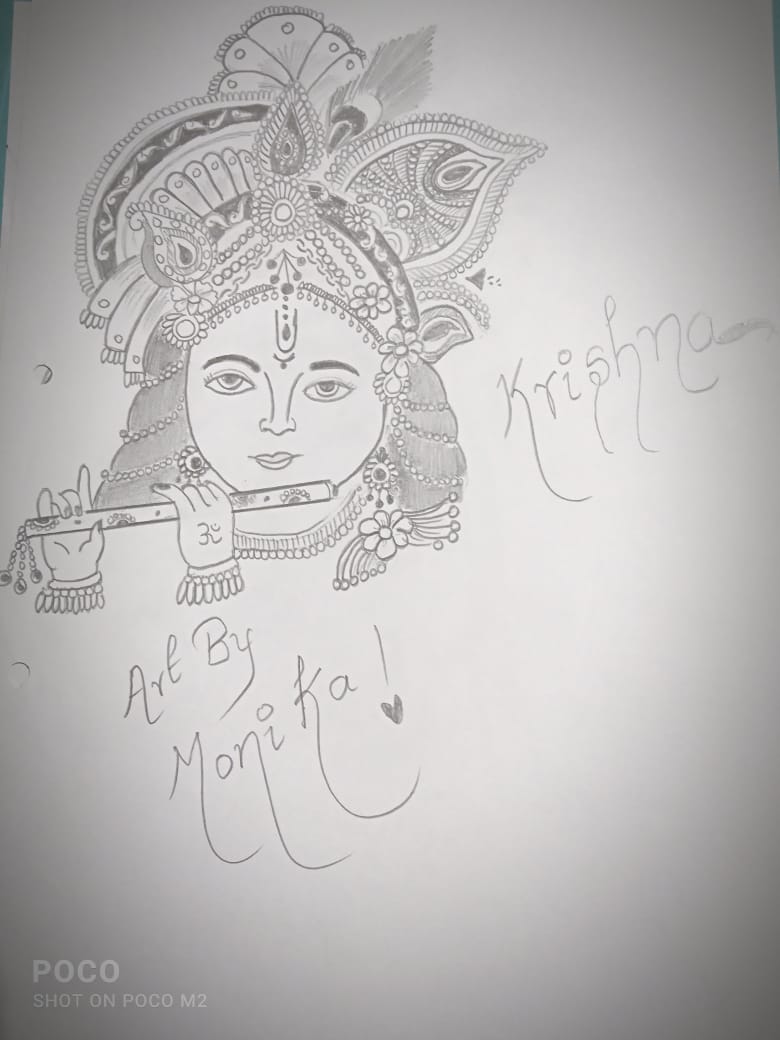 Krishna
ॐ
Art By
Monika!
POCO
SHOT ON POCO M2